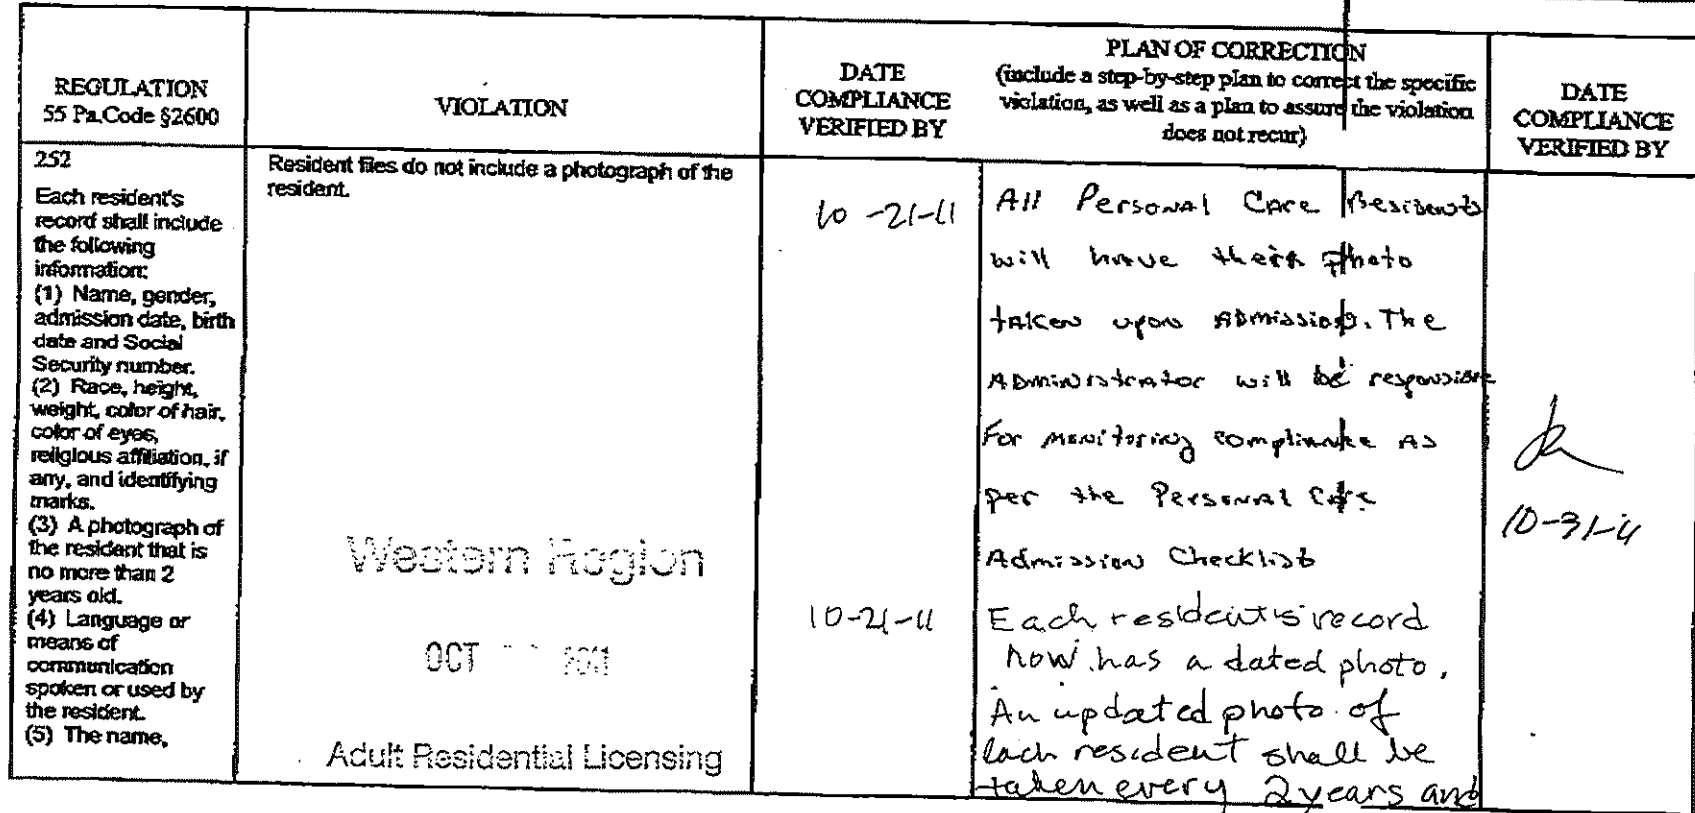 REGULATION
55 Pa.Code §2600
VIOLATION
DATE
COMPLIANCE
VERIFIED BY
PLAN OF CORRECTION
(include a step-by-step plan to correct the specific
violation, as well as a plan to assure the violation
does not recur)
DATE
COMPLIANCE
VERIFIED BY
252
Each resident's
record shall include
the following
information:
(1) Name, gender,
admission date, birth
date and Social
Security number.
(2) Race, height,
weight, color of hair,
color of eyes,
religious affiliation, if
any, and identifying
marks.
(3) A photograph of
the resident that is
no more than 2
years old.
(4) Language or
means of
communication
spoken or used by
the resident.
(5) The name,
Resident files do not include a photograph of the
resident.
Western Region
OCT 2011
Adult Residential Licensing
10-21-11
10-21-11
All Personal Care Residents
will have their photo
taken upon Admission. The
Administrator will be responsible
For monitoring compliance As
per the Personal Care
Admission Checklist
Each resident's record
now has a dated photo.
An updated photo of
each resident shall be
taken every 2 years and
10-31-11